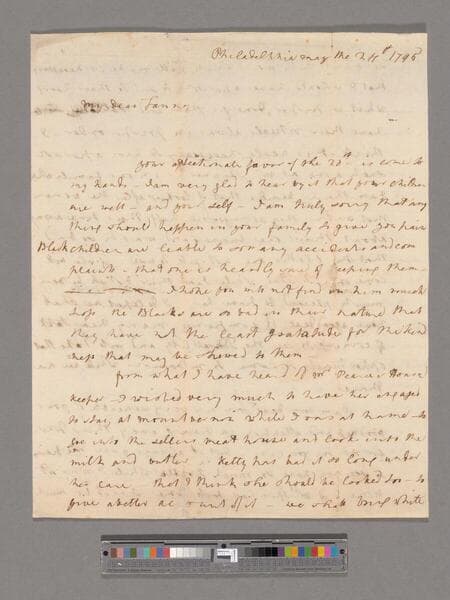 Philadelphia may the 24th 1795
My dear Fanny
your affectionate favor of the 20th is come to
my hands I am very glad to hear by it that your children
are well - and your self - I am truly sorry that any
thing should happen in your family to give you pain
Black children are liable to so many accidents and com
plaints - that one is heardly sure of keeping them
I hope you will not find in him much
loss the Blacks are so bad in their nature that
they have not the least gratatude for the kind
ness that may be shewed to them
from what I have heard of mr Pearces House
keeper I wished very much to have her engaged
to stay at mount vernon while I was at home - to
goe into the sellers meat house and look into the
milk and butter Kitty has had it so long under
her care that I think she should be looked too - to
give a better account of it - we shall bring white